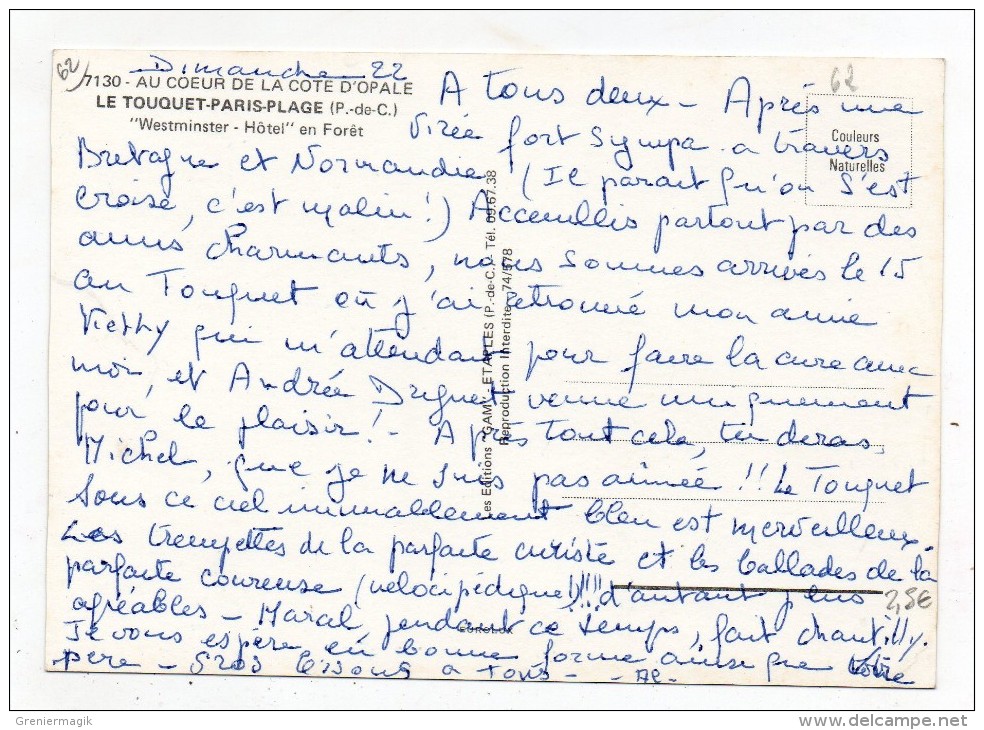 62
62
Dimanche 22
7130 - AU COEUR DE LA COTE D'OPALE
LE TOUQUET-PARIS-PLAGE (P.-de-C.)
"Westminster - Hôtel" en Forêt
Couleurs
Naturelles
A tous deux - Après une
virée fort sympa a travers
Bretagne et Normandie (Il parait qu'on s'est
croisé, c'est malin!) Accueillis partout par des
amis charmants, nous sommes arrivés le 15
au Touquet où j'ai retrouvé mon amie
Viethy qui m'attendait pour faire la cure avec
moi, et Andrée venue uniquement
pour le plaisir! - Après tout cela, tu diras
Michel, que je ne suis pas aimée!! Le Touquet
sous ce ciel immuablement bleu est merveilleux.
Les trempettes de la parfaite curiste et les ballades de la
parfaite coureuse (velocipédique)!!!! d'autant plus
agréables - Marcel pendant ce temps, fait chantilly.
Je vous espère en bonne forme ainsi que votre
père - Gros bisous a tous -
Les Editions "GAM" - ETAPLES (P.-de-C.) - Tél. 09.67.38
Reproduction Interdite - 74/578
2,5€
Greniermagik
www.delcampe.net